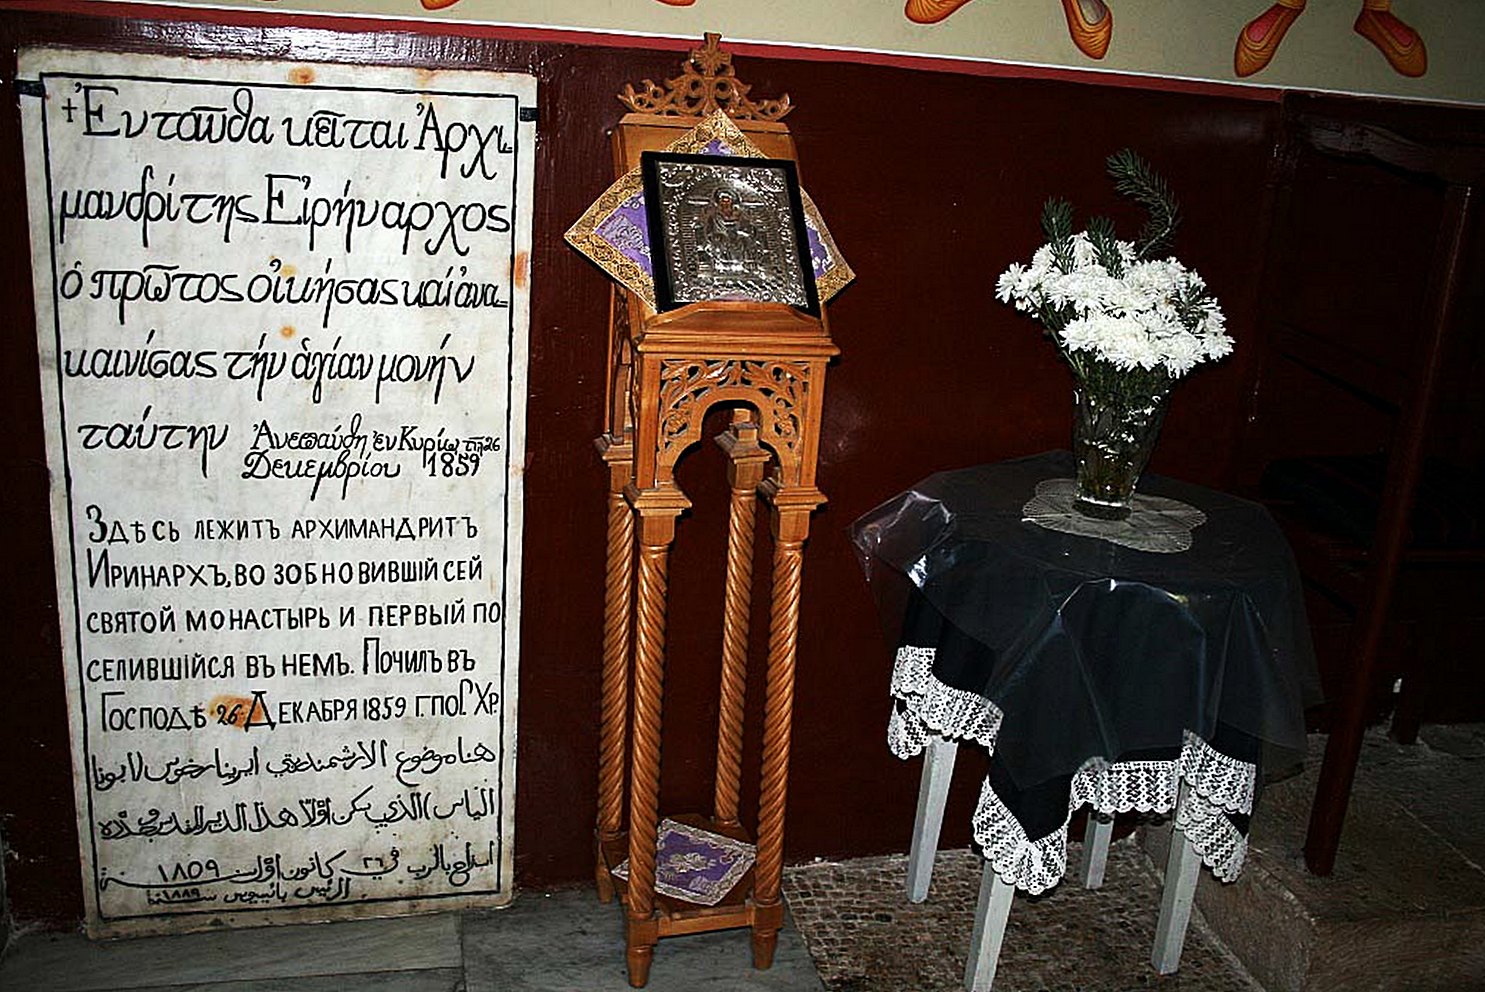 +Ἐνταῦθα κεῖται Ἀρχι_
μανδρίτης Εἰρήναρχος
ὁ πρῶτος οἰκήσας καί ἀνα_
καινίσας τήν ἁγίαν μονήν
ταύτην Ἀνεπαύθη ἐν Κυρίῳ τῇ 26
Δεκεμβρίου 1859
Здѣсь лежитъ архимандритъ
Иринархъ, во зобновившій сей
святой монастырь и первый по
селившійся въ немъ. Почилъ въ
Господѣ 26 Декабря 1859 г. по Г. Хр.
هنا موضوع الارشمندريتي ايريناخوس لابونا
الياس الذي سكن اوّلا هذا الدير المقدس
بالرب في ٢٦ كانون اول سنة ١٨٥٩
الريس بائيسيوس سنة ١٨٨٩